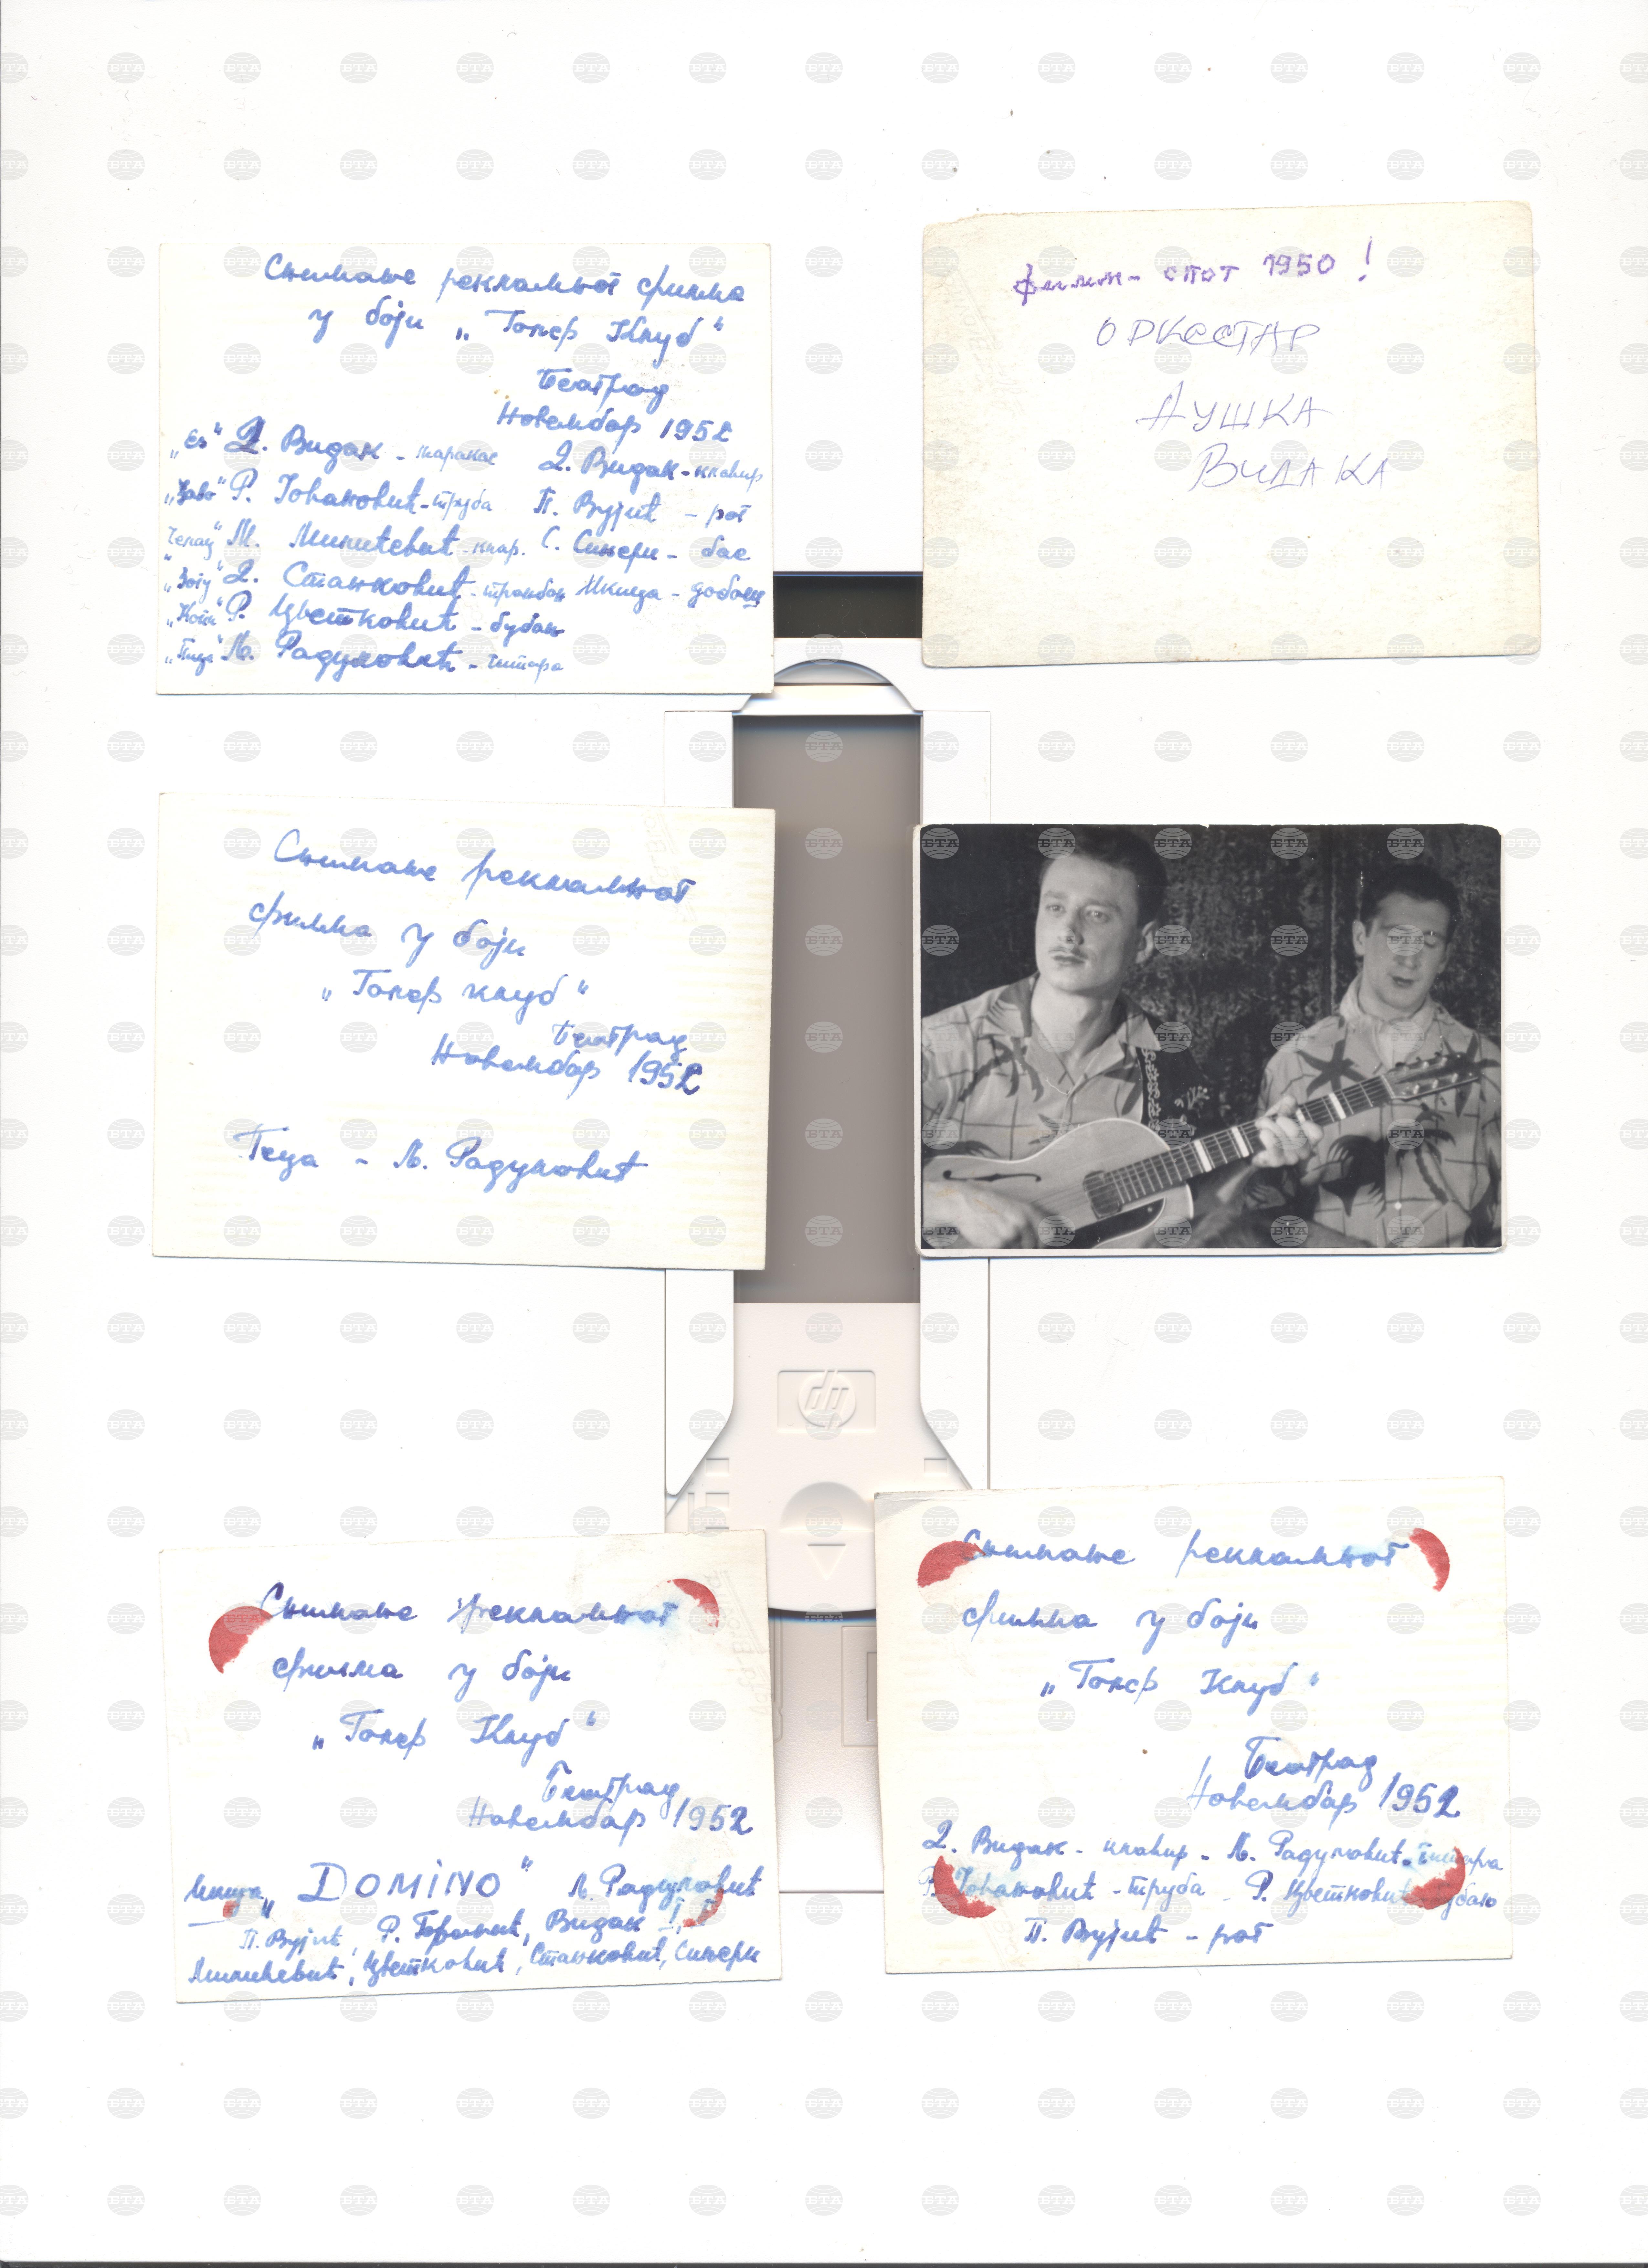 Снимање рекламног филма
у боји „Голф Клуб“
Београд
Новембар 1952
Д. Видак - маракас Д. Видак - клавир
Р. Јовановић - труба П. Вујић - рог
М. Милићевић - клар. С. Сињери - бас
Д. Станковић - тромбон Мкица - добош
Р. Цветковић - бубањ
М. Радуловић - гитара
филм - спот 1950!
ОРКЕСТАР
ДУШКА
ВИДАКА
Снимање рекламног
филма у боји
клуб“
Београд
Новембар 1952
Геца - М. Радуловић
hp
Снимање рекламног
филма у боји
Клуб“
Београд
Новембар 1952
„DOMINO“ М. Радуловић
П. Вујић, Р. Видак
Милићевић, Цветковић, Станковић, Сињери
Снимање рекламног
филма у боји
Клуб“
Београд
Новембар 1952
Д. Видак - клавир - М. Радуловић - гитара
Р. Јовановић - труба - Р. Цветковић
П. Вујић - рог
БТА